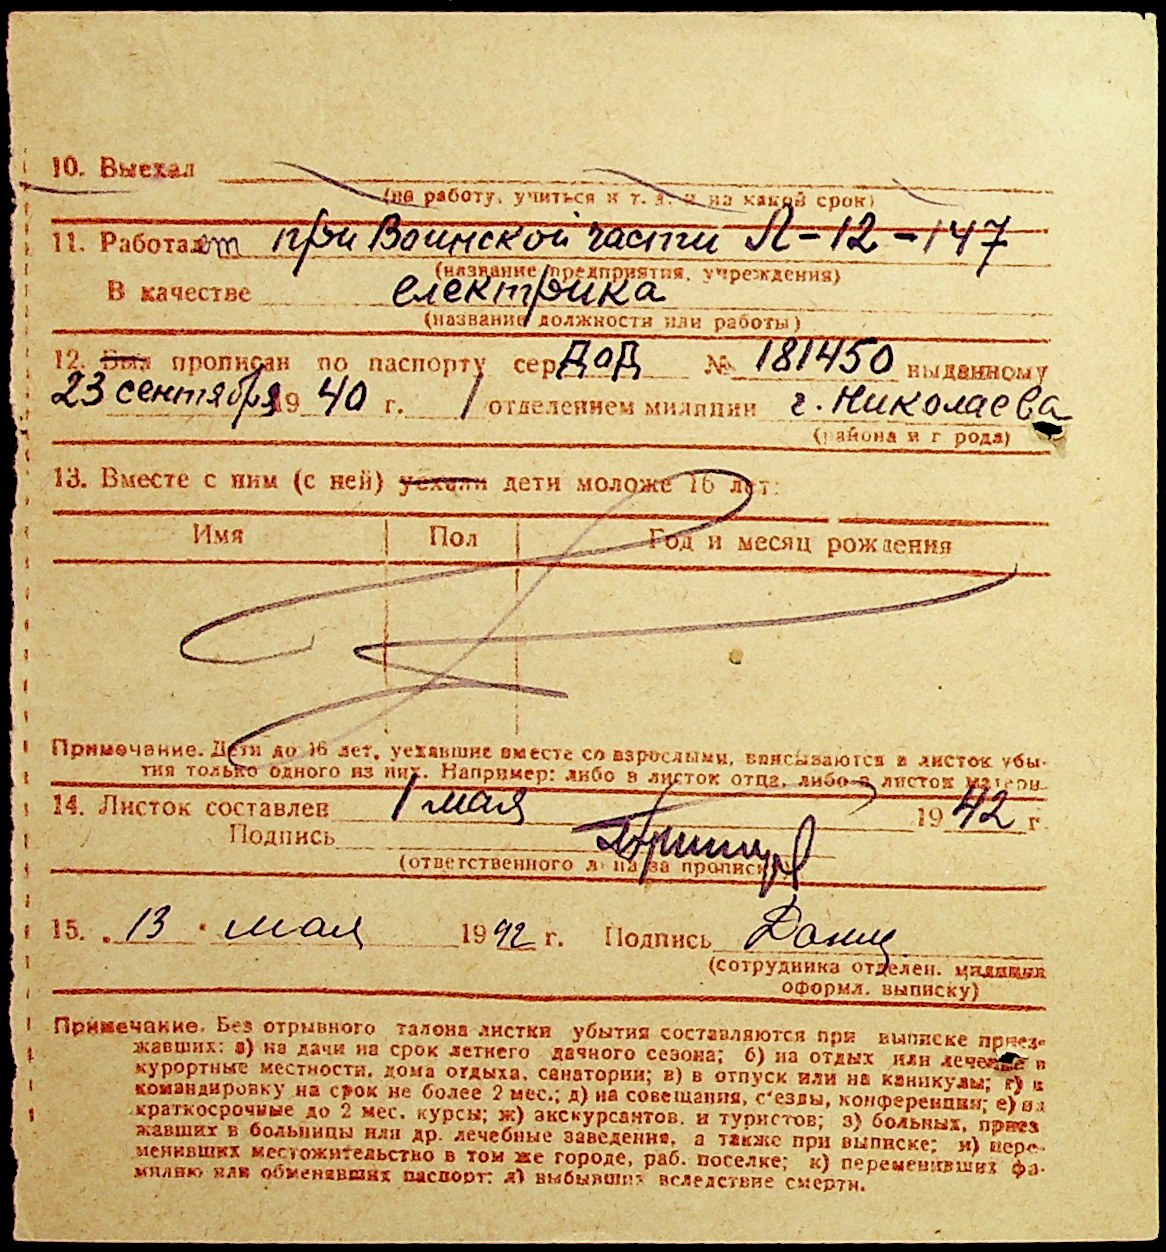 10. Выехал
(на работу, учиться и т. д. и на какой срок)
11. Работает при Воинской части Л-12-147
(название предприятия, учреждения)
В качестве електрика
(название должности или работы)
12. Был прописан по паспорту сер. ДоД № 181450 выданному
23 сентября 1940 г. 1 отделением милиции г. Николаева
(района и города)
13. Вместе с ним (с ней) уехали дети моложе 16 лет:
Имя Пол Год и месяц рождения
Примечание. Дети до 16 лет, уехавшие вместе со взрослыми, вписываются в листок убы-
тия только одного из них. Например: либо в листок отца, либо в листок матери.
14. Листок составлен 1 мая 1942 г.
Подпись
(ответственного лица за прописку)
15. 13 мая 1942 г. Подпись
(сотрудника отделен. милиции
оформл. выписку)
Примечание. Без отрывного талона листки убытия составляются при выписке приез-
жавших: а) на дачи на срок летнего дачного сезона; б) на отдых или лечение в
курортные местности, дома отдыха, санатории; в) в отпуск или на каникулы; г) в
командировку на срок не более 2 мес.; д) на совещания, с'езды, конференции; е) на
краткосрочные до 2 мес. курсы; ж) экскурсантов и туристов; з) больных, приез
жавших в больницы или др. лечебные заведения, а также при выписке; и) пере-
менивших местожительство в том же городе, раб. поселке; к) переменивших фа-
милию или обменявших паспорт; л) выбывших вследствие смерти.